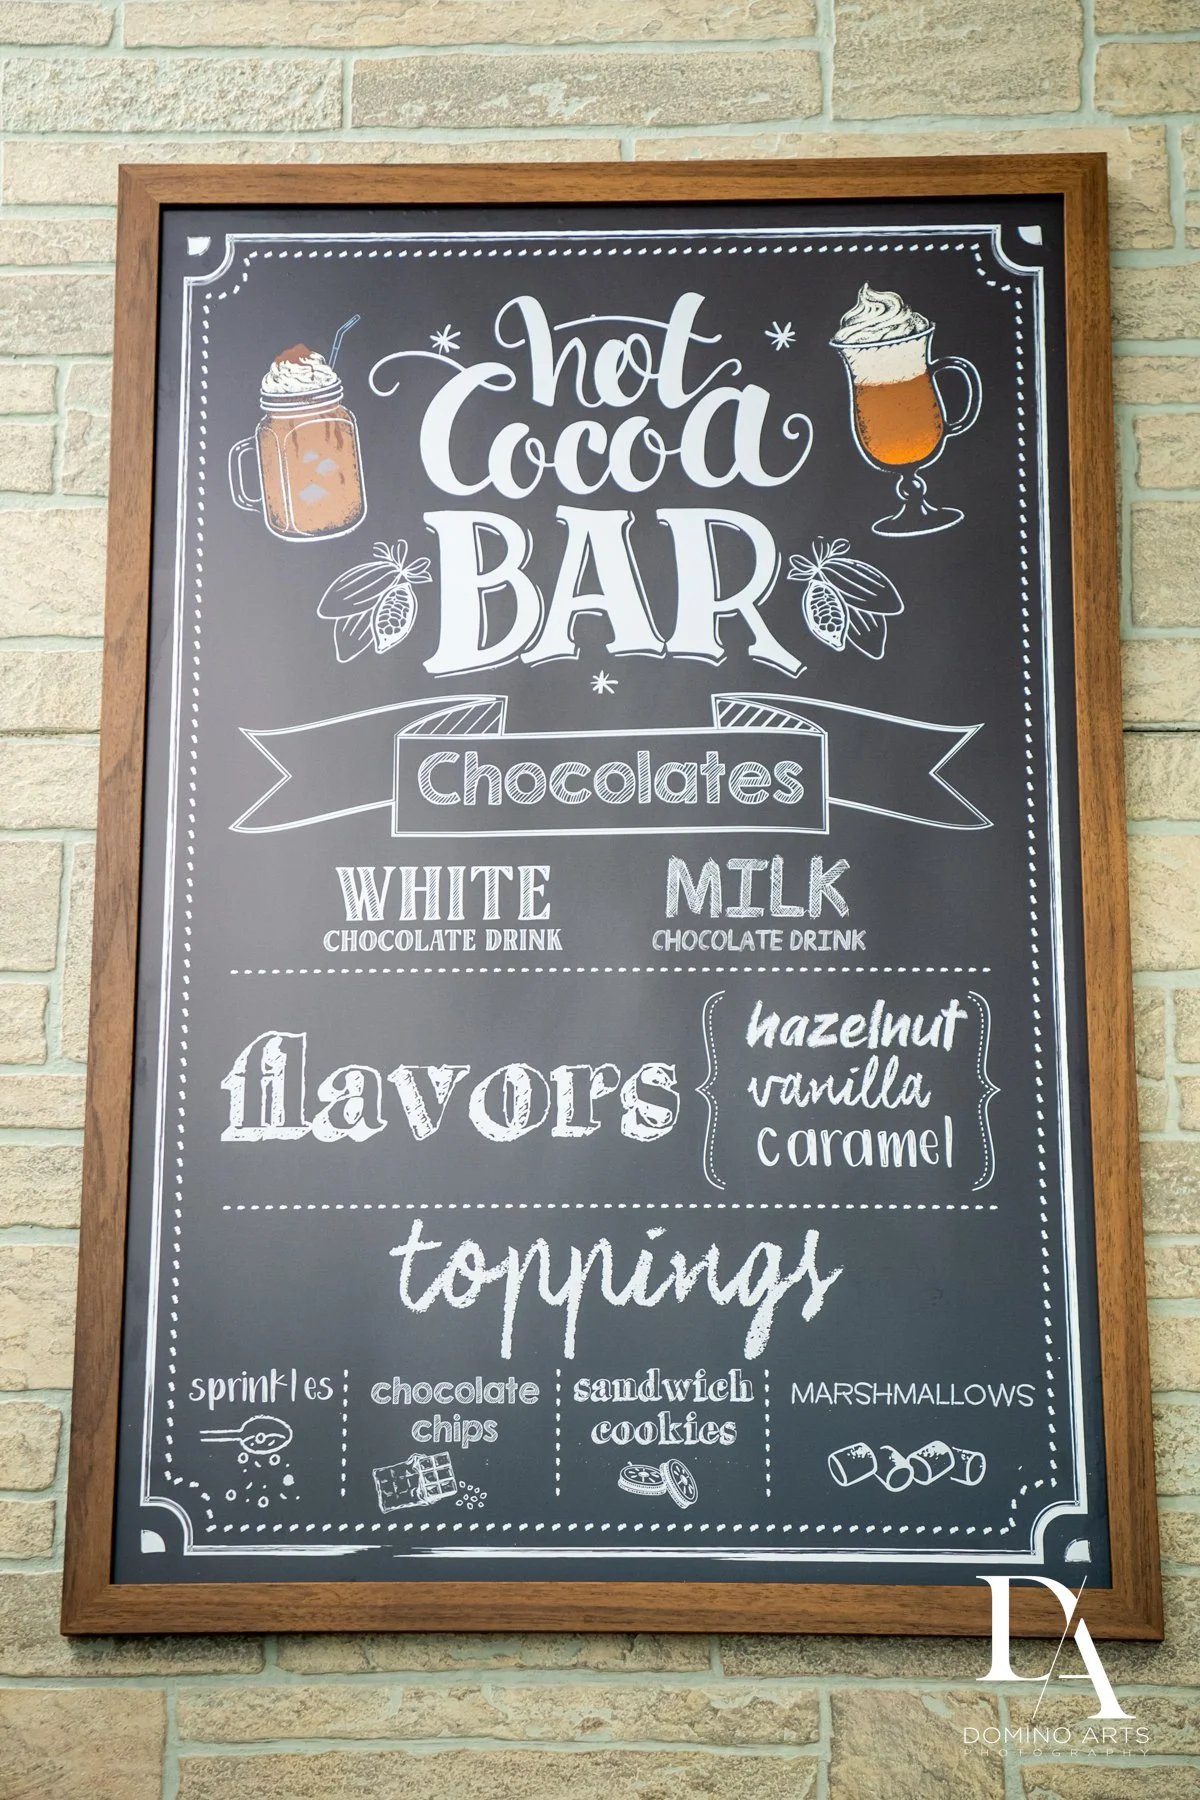 hot
Cocoa
BAR
Chocolates
WHITE
CHOCOLATE DRINK
MILK
CHOCOLATE DRINK
flavors
hazelnut
vanilla
caramel
toppings
sprinkles
chocolate
chips
sandwich
cookies
MARSHMALLOWS
DA
DOMINO ARTS
PHOTOGRAPHY